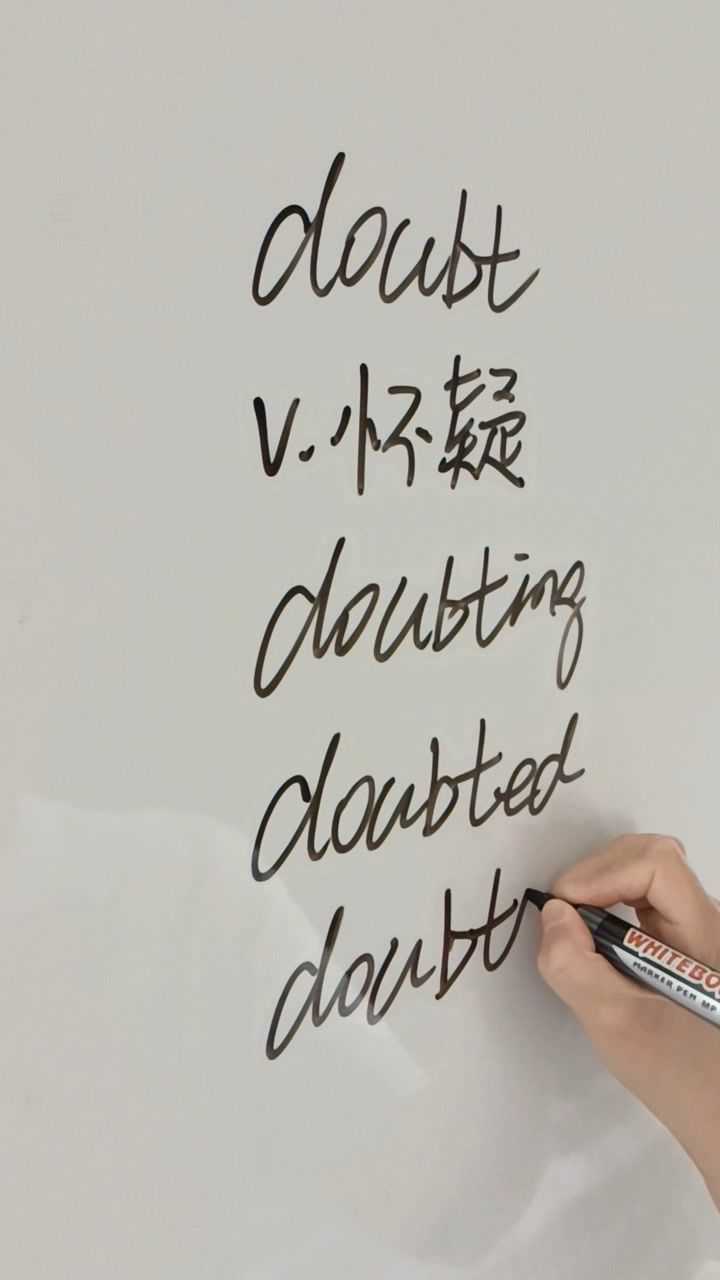 doubt
v.怀疑
doubting
doubted
doubt
WHITEBO
MARKER PEN MP